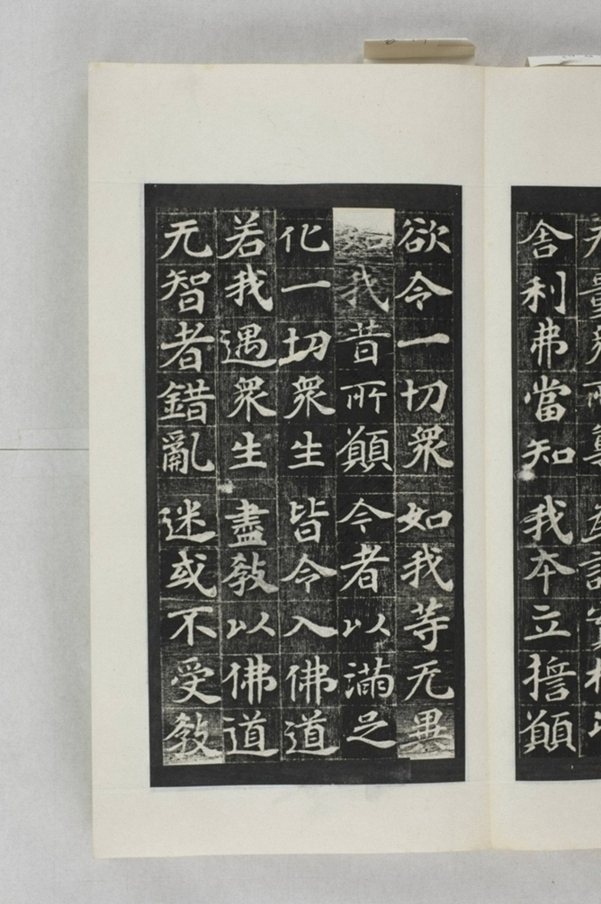 舍利弗當知 我夲立誓願
欲令一切衆 如我等无異
我昔所願 今者以滿足
化一切衆生 皆令入佛道
若我遇衆生 盡教以佛道
无智者錯亂 迷或不受教